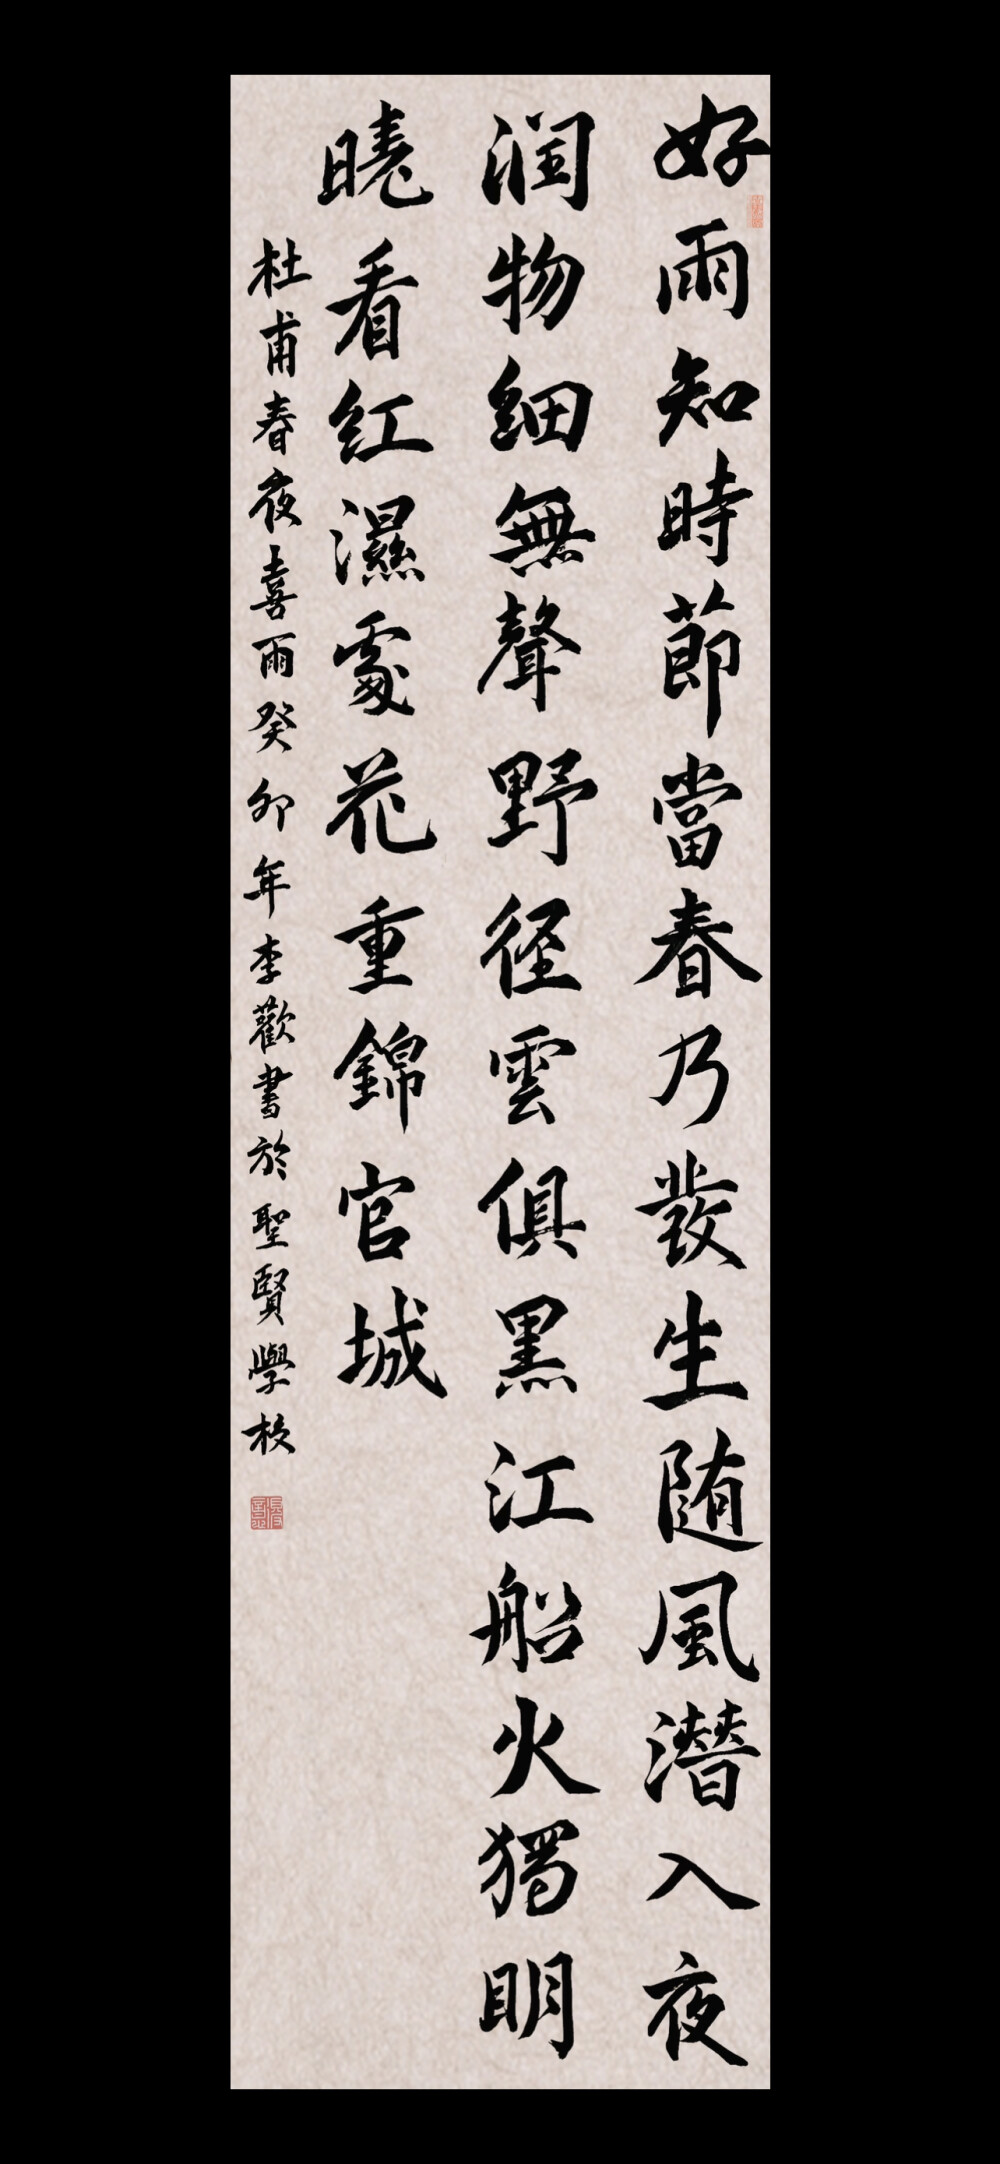 好雨知時節當春乃發生随風潜入夜
润物细無聲野径雲俱黑江船火獨明
曉看红濕處花重錦官城
杜甫春夜喜雨癸卯年李歡書於聖賢學校